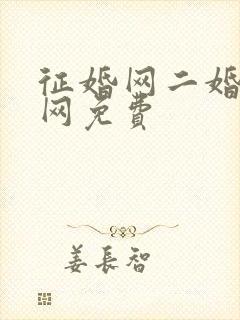 征婚网二婚
网免费
姜长智